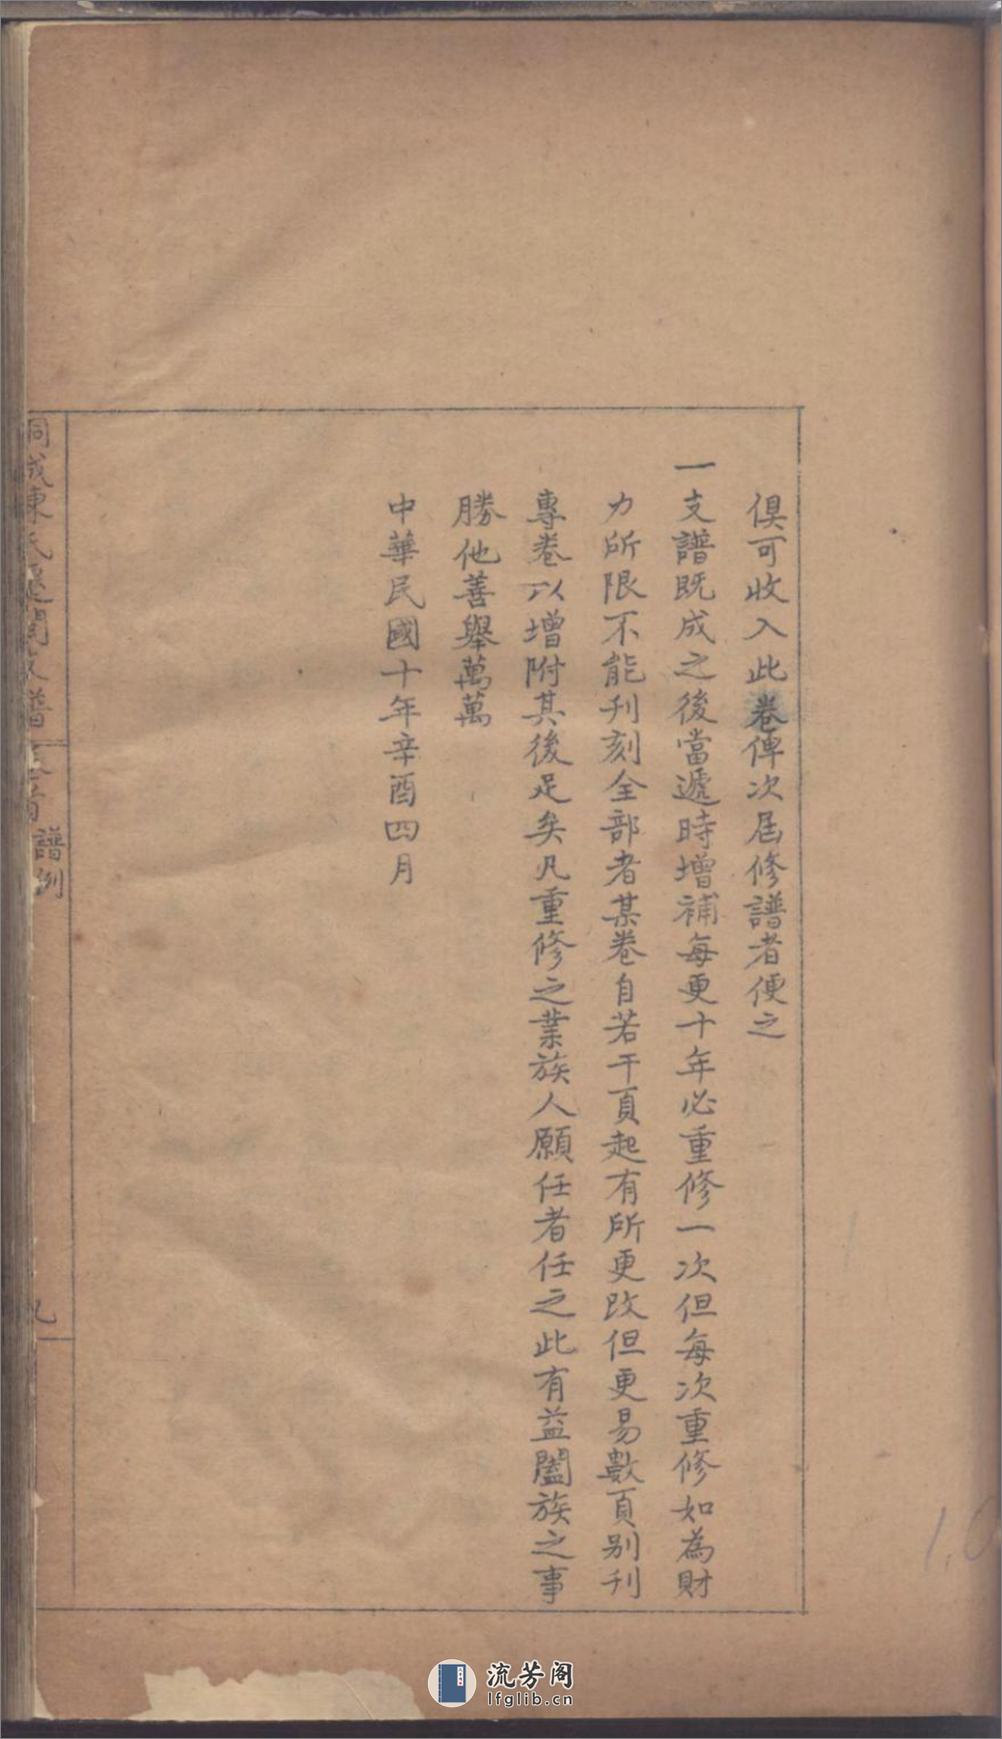 俱可收入此卷俾次屆修譜者便之
一支譜既成之後當遞時增補每更十年必重修一次但每次重修如為財
力所限不能刊刻全部者某卷自若干頁起有所更改但更易數頁別刊
專卷以增附其後足矣凡重修之業族人願任者任之此有益闔族之事
勝他善舉萬萬
中華民國十年辛酉四月
陳氏 譜
譜例
九
流芳阁
lfglib.cn